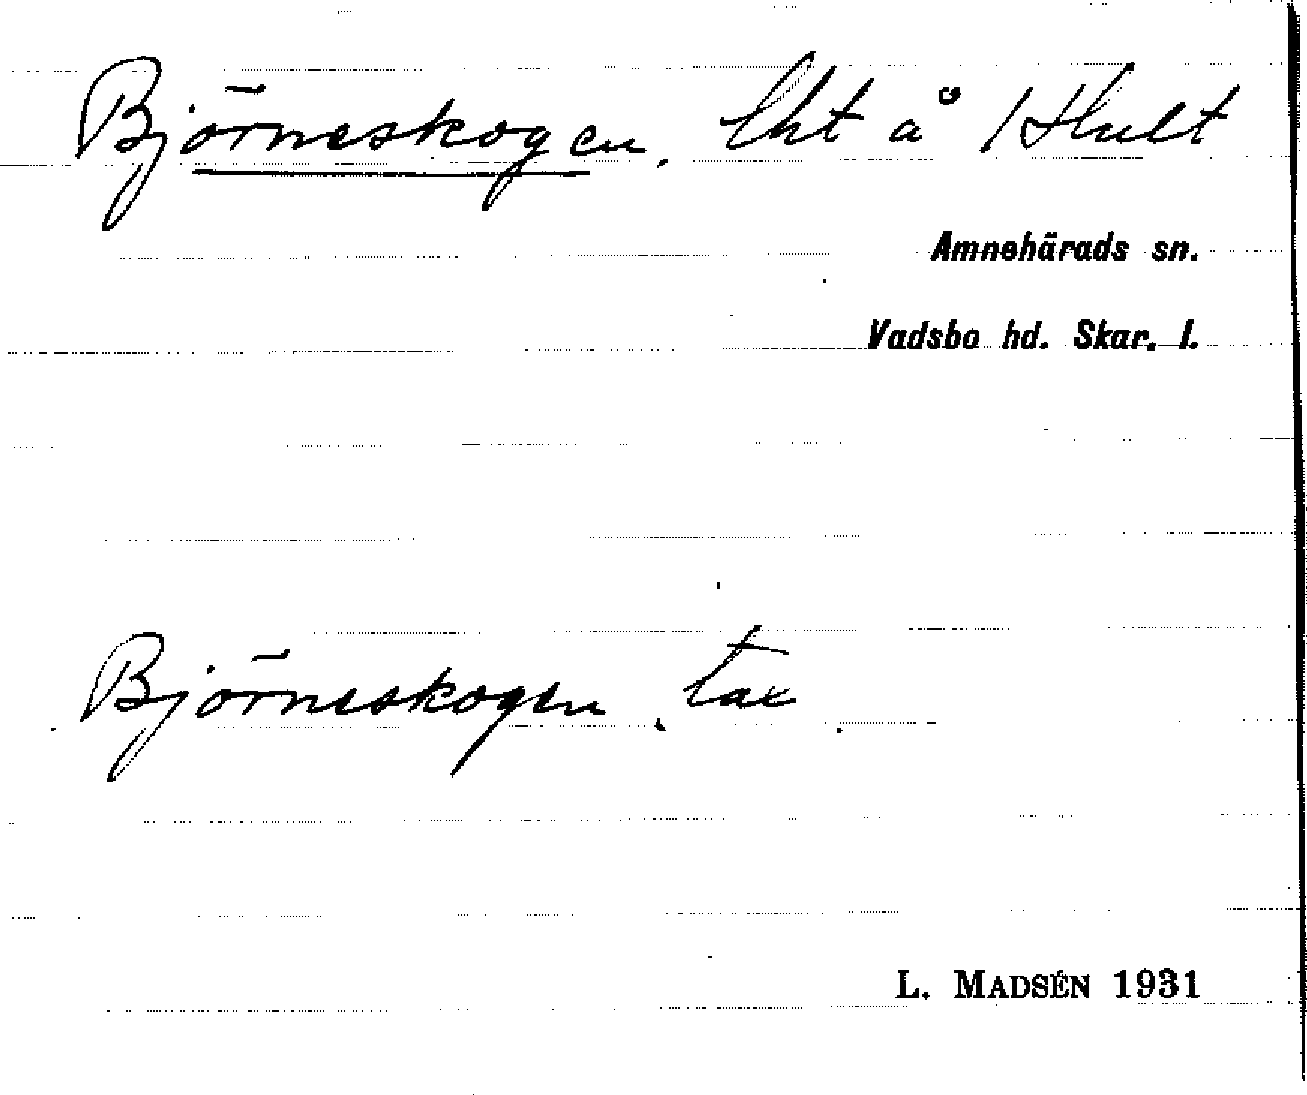 Björneskogen, lht å 1 Hult
Amnehärads sn.
Vadsbo hd. Skar. l.
Björneskogen, tax
L. MADSÉN 1931